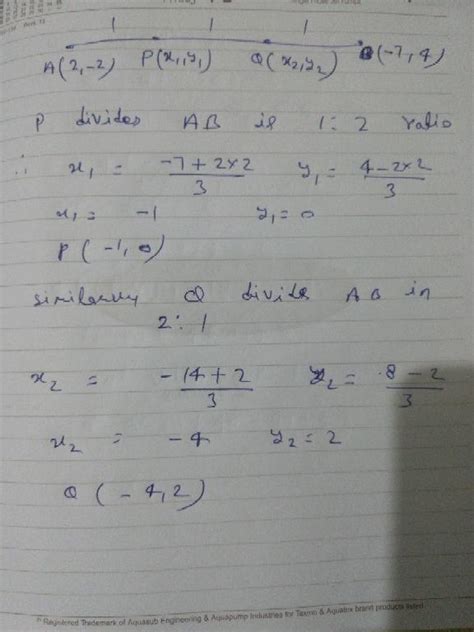 1 1 1
A(2,-2) P(x₁,y₁) Q(x₂,y₂) B(-7,4)
P divides AB is 1:2 ratio
∴ x₁ = (-7+2×2)/3 y₁ = (4-2×2)/3
x₁ = -1 y₁ = 0
P(-1,0)
similarly Q divide AB in
2:1
x₂ = (-14+2)/3 y₂ = (8-2)/3
x₂ = -4 y₂ = 2
Q(-4,2)
Registered Trademark of Aquasub Engineering & Aquapump Industries for Texmo & Aquatex brand products listed